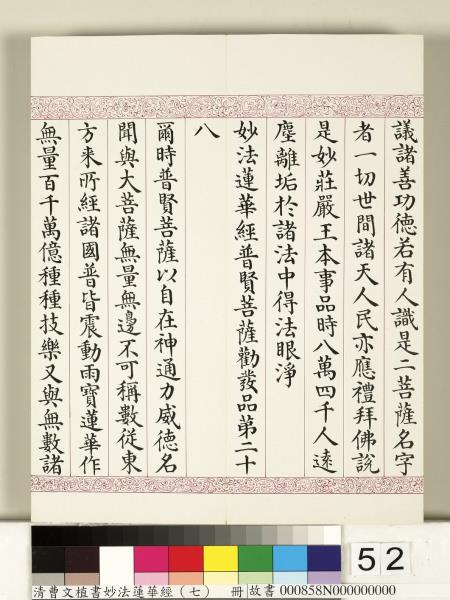 議諸善功德若有人識是二菩薩名字
者一切世間諸天人民亦應禮拜佛說
是妙莊嚴王本事品時八萬四千人遠
塵離垢於諸法中得法眼淨
妙法蓮華經普賢菩薩勸發品第二十
八
爾時普賢菩薩以自在神通力威德名
聞與大菩薩無量無邊不可稱數從東
方來所經諸國普皆震動雨寶蓮華作
無量百千萬億種種技樂又與無數諸
52
清曹文植書妙法蓮華經(七) 冊 故書 000858N000000000